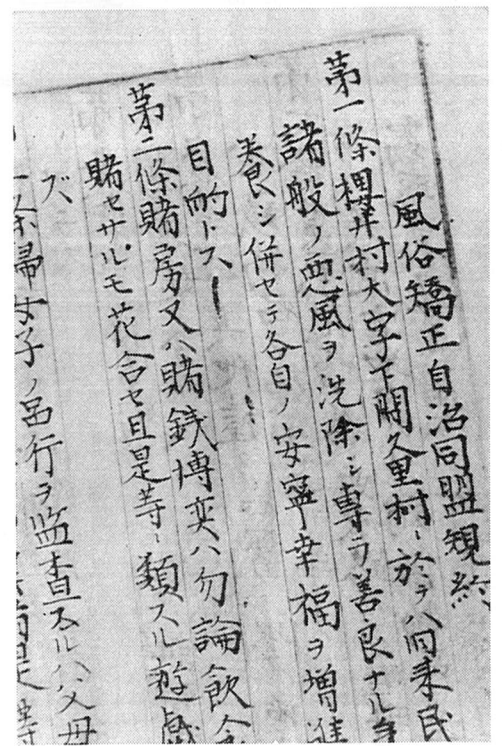 風俗矯正自治同盟規約
第一條櫻井村大字下開久里村ニ於テハ向来民
諸般ノ悪風ヲ洗除シ専ラ善良ナル
養シ併セテ各自ノ安寧幸福ヲ増進
目的トス
第二條賭房又ハ賭銭博奕ハ勿論飲食
賭セサルモ花合セ且是等ニ類スル遊戯
ズ
條婦女子ノ品行ヲ監査スルハ父母